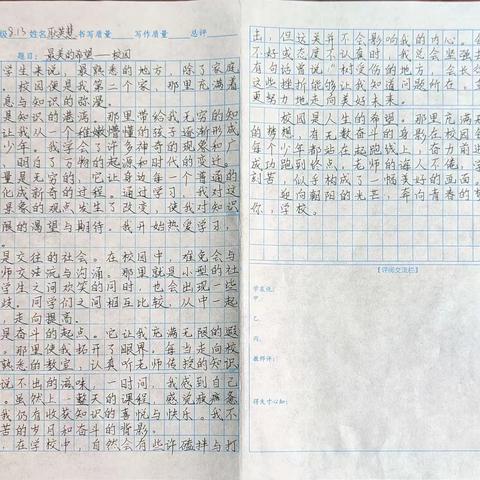 级8.13 姓名 书写质量 写作质量 总评
题目：最美的希望——校园
学生来说，最熟悉的地方，除了家庭
校园便是我第二个家，那里充满着
息与知识的弥漫。
是知识的港湾。那里带给我无穷的知
让我从一个稚嫩懵懂的孩子逐渐形成
少年。我学会了许多神奇的现象和广
明白了万物的起源和时代的变迁。
量是无穷的，它让身边每一个普通的
化成新奇的过程。通过学习，我对这
景象的观点发生了改变，使我对知识
限的渴望与期待。我开始热爱学习，
是交往的社会。在校园中，难免会与
师交流与沟通，那里就是小型的社
学生之间欢笑的同时，也会出现一些
歧。同学们之间相互比较，从中一起
，走向提高。
是奋斗的起点。它让我充满无限的遐
。那里使我拓开了眼界，每当走向校
熟悉的教室，认真听老师传授的知识
说不出的滋味，一时间，我感到自己
。虽然上一整天的课程，感觉疲惫
我仍有收获知识的喜悦与快乐，我不
苦的岁月和奋斗的背影。
，在学校中，自然会有些许磕拌与打
击，但这并不会影响我的内心。
不好或态度不认真时，我总会坚强
有句话曾说“树受伤的地方，会长
这些挫折能够让我知道问题所在，
更努力地走向美好未来。
校园是人生的希望。那里充满
的梦想，有无数奋斗的身影在校园
每个少年都站在起跑线上，奋力前
成功跑到终点，老师的诲人不倦，
刻苦，似乎构成了一幅美好的画面
迎向朝阳的光芒，奔向青春的
你，学校。
【评阅交流栏】
学友说：
甲
乙
丙
教师评：
得失寸心知：